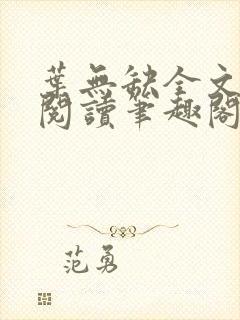 葉無缺全文
閱讀筆趣閣
范勇